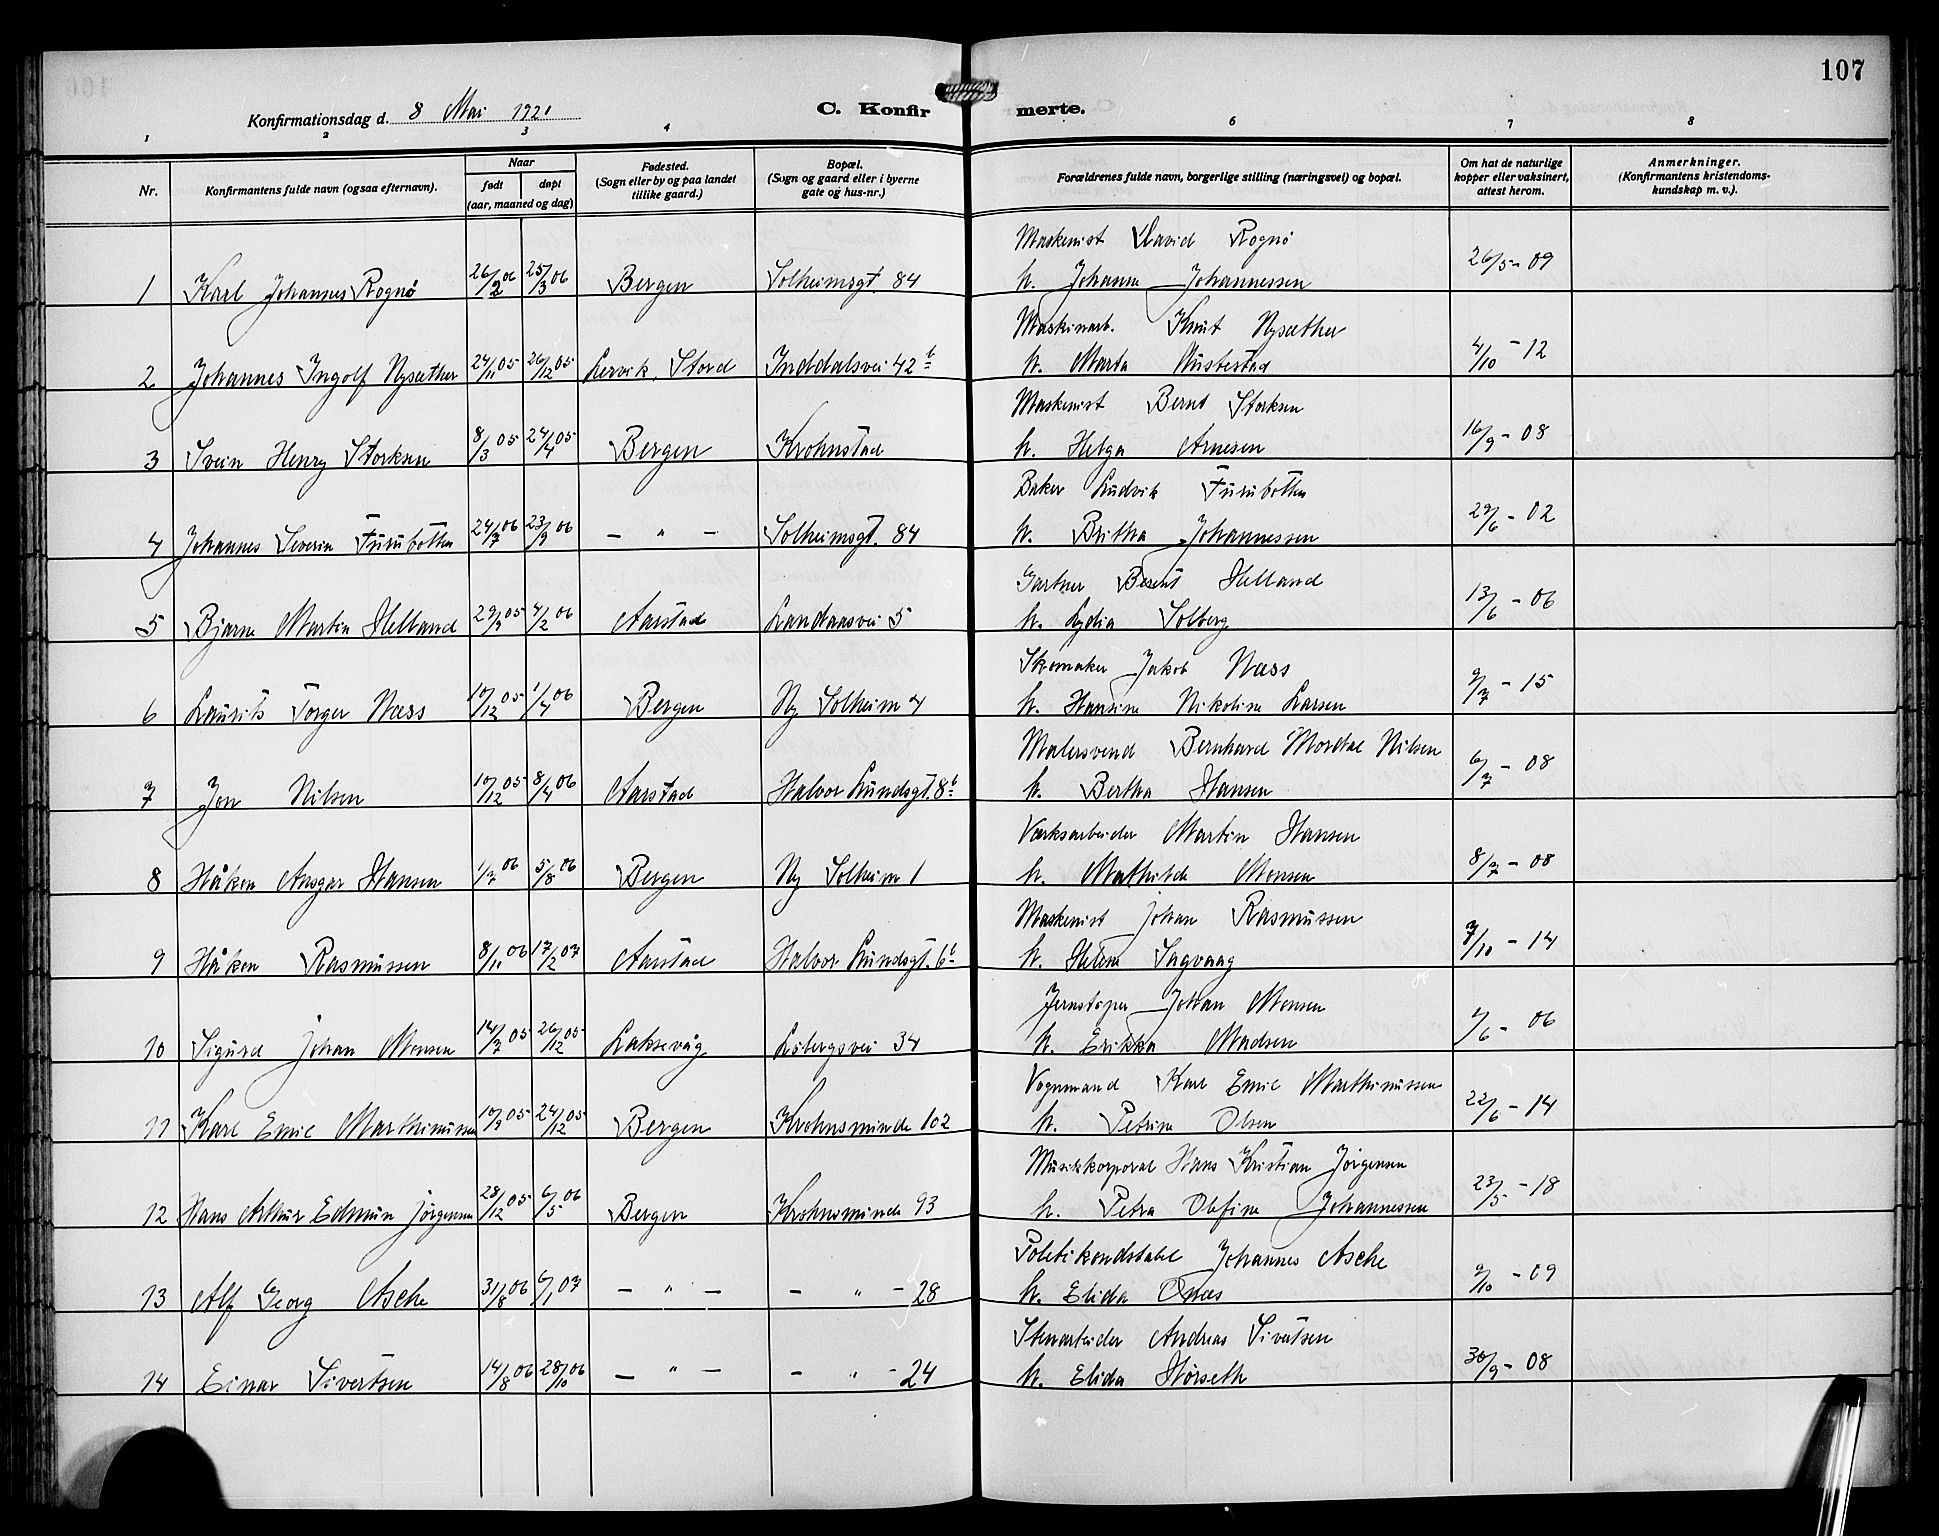 107
Konfirmationsdag d. 8 Mai 1921
C. Konfir merte.
1 2 3 4 5 6 7 8
Nr.
Konfirmantens fulde navn (ogsaa efternavn).
Naar
født døpt
(aar, maaned og dag)
Fødested.
(Sogn eller by og paa landet
tillike gaard.)
Bopæl.
(Sogn og gaard eller i byerne
gate og hus-nr.)
Forældrenes fulde navn, borgerlige stilling (næringsvei) og bopæl.
Om hat de naturlige
kopper eller vaksinert,
attest herom.
Anmerkninger.
(Konfirmantens kristendoms-
kundskap m. v.)
Maskinist David Rognø
1 Karl Johannes Rognø 26/2 06 25/3 06 Bergen Solheimsgt. 84 h. Johanna Johannessen 26/5 - 09
Maskinarb. Knut Nysæther
2 Johannes Ingolf Nysæther 24/11 05 26/12 05 Lervik, Stord Inddalsvei 42 b h. Marta 4/10 - 12
Maskinist Bernt Storksen
3 Svein Henry Storksen 8/3 05 24/4 05 Bergen Krohnstad h. Helga Arnesen 16/9 - 08
Baker Ludvik Furubotten
4 Johannes Severin Furubotten 24/7 06 23/9 06 - " - Solheimsgt. 84 h. Britha Johannessen 29/6 - 02
Gartner Berent Helland
5 Bjarne Martin Helland 29/9 05 4/2 06 Aarstad Landaasvei 5 h. Lydia Solberg 13/6 - 06
Skomaker Jakob Næss
6 Laurits Torger Næss 10/12 05 1/4 06 Bergen Ny Solheim 4 h. Hansine Nikoline Larsen 9/7 - 15
Malersvend Bernhard Mordal Nilsen
7 Jon Nilsen 10/12 05 8/4 06 Aarstad Halvor Lundsgt. 8 b h. Bertha Hansen 6/7 - 08
Værksarbeider Martin Hansen
8 Håkon Ansgar Hansen 1/7 06 5/8 06 Bergen Ny Solheim 1 h. Mathilde Monsen 8/7 - 08
Maskinist Johan Rasmussen
9 Håkon Rasmussen 8/11 06 17/2 07 Aarstad Halvor Lundsgt. 6 b h. Helene Sagvaag 7/10 - 14
Jernstøper Johan Monsen
10 Sigurd Johan Monsen 14/7 05 26/12 05 Laksevåg Løbergsvei 34 h. Erikka Madsen /6 - 06
Vognmand Karl Emil Marthinussen
11 Karl Emil Marthinussen 10/9 05 24/12 05 Bergen Krohnsminde 102 h. Petrine Olsen 22/6 - 14
Musikkorporal Hans Kristian Jørgensen
12 Hans Arthur Edmun Jørgensen 28/12 05 6/5 06 Bergen Krohnsminde 93 h. Petra Olefine Johannessen 23/5 - 18
Politikonstabel Johannes Asche
13 Alf Georg Asche 31/8 06 6/1 07 - " - - " - 28 h. Elida 9/10 - 09
Stenarbeider Andreas Sivertsen
14 Einar Sivertsen 14/8 06 28/10 06 - " - - " - 24 h. Elida Hørseth 30/9 - 08